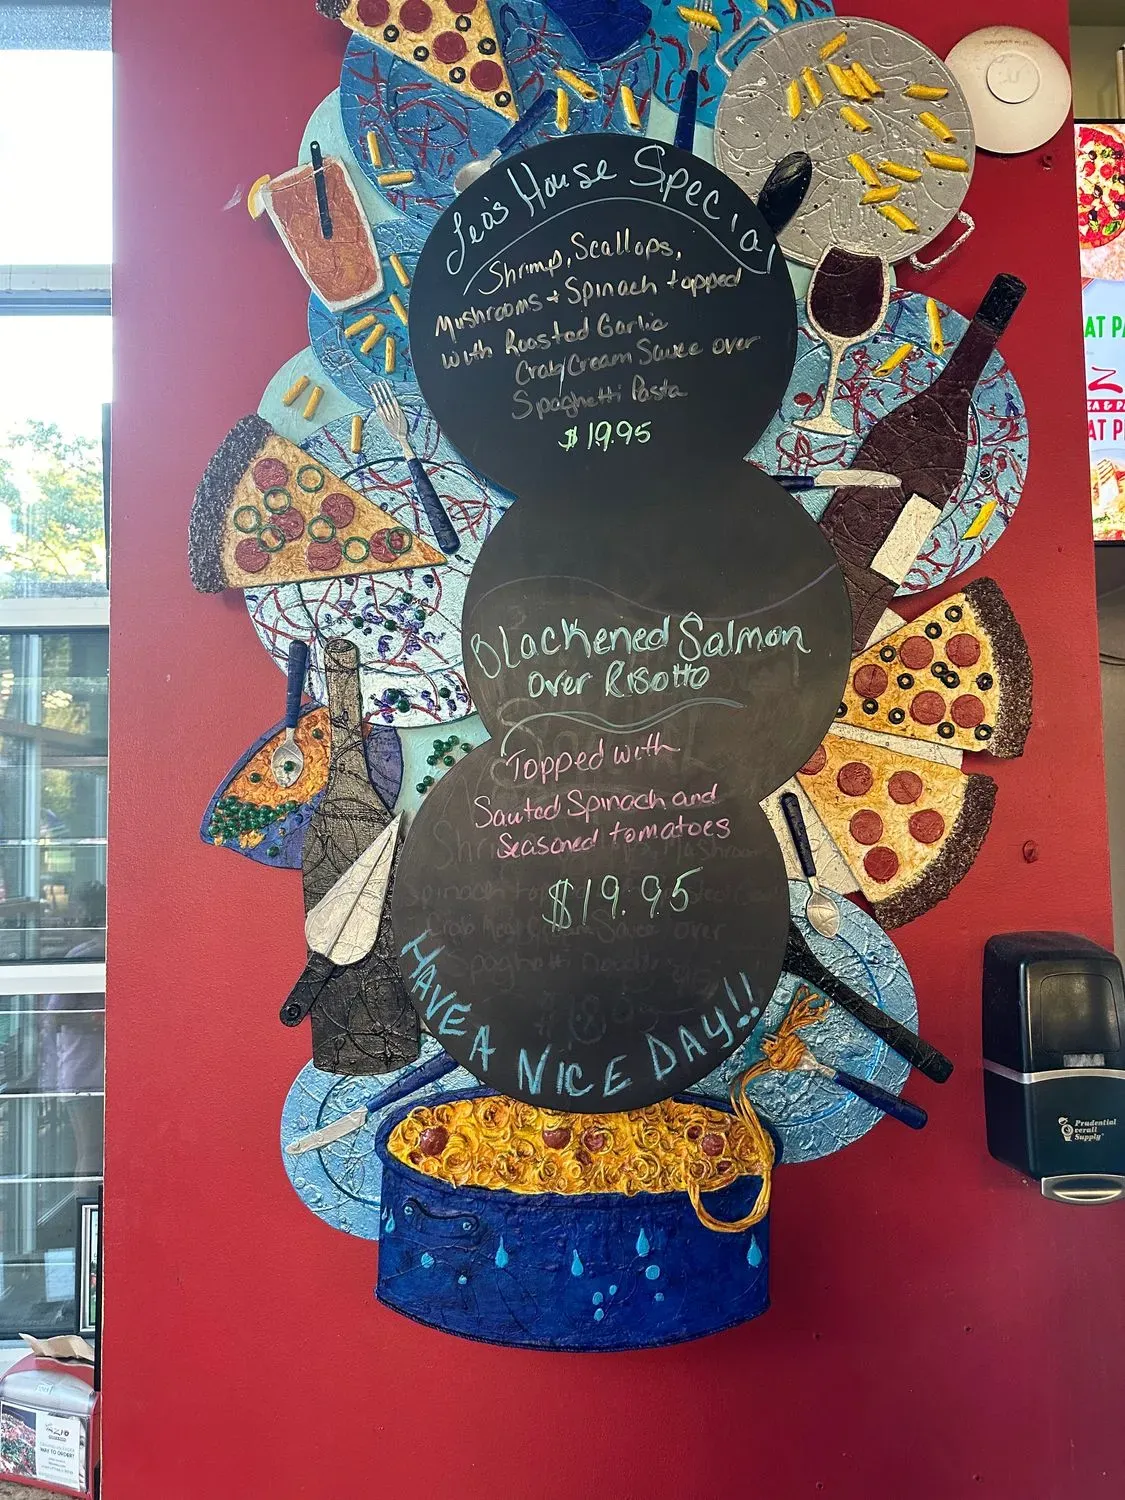 Leo's House Special
Shrimp, Scallops,
Mushrooms + Spinach topped
with Roasted Garlic
Crab Cream Sauce over
Spaghetti Pasta
$19.95
Blackened Salmon
over Risotto
Topped with
Sauted Spinach and
Seasoned tomatoes
$19.95
HAVE A NICE DAY!!
AT P
AT P
Prudential
Overall
Supply
WAY TO ORDER!